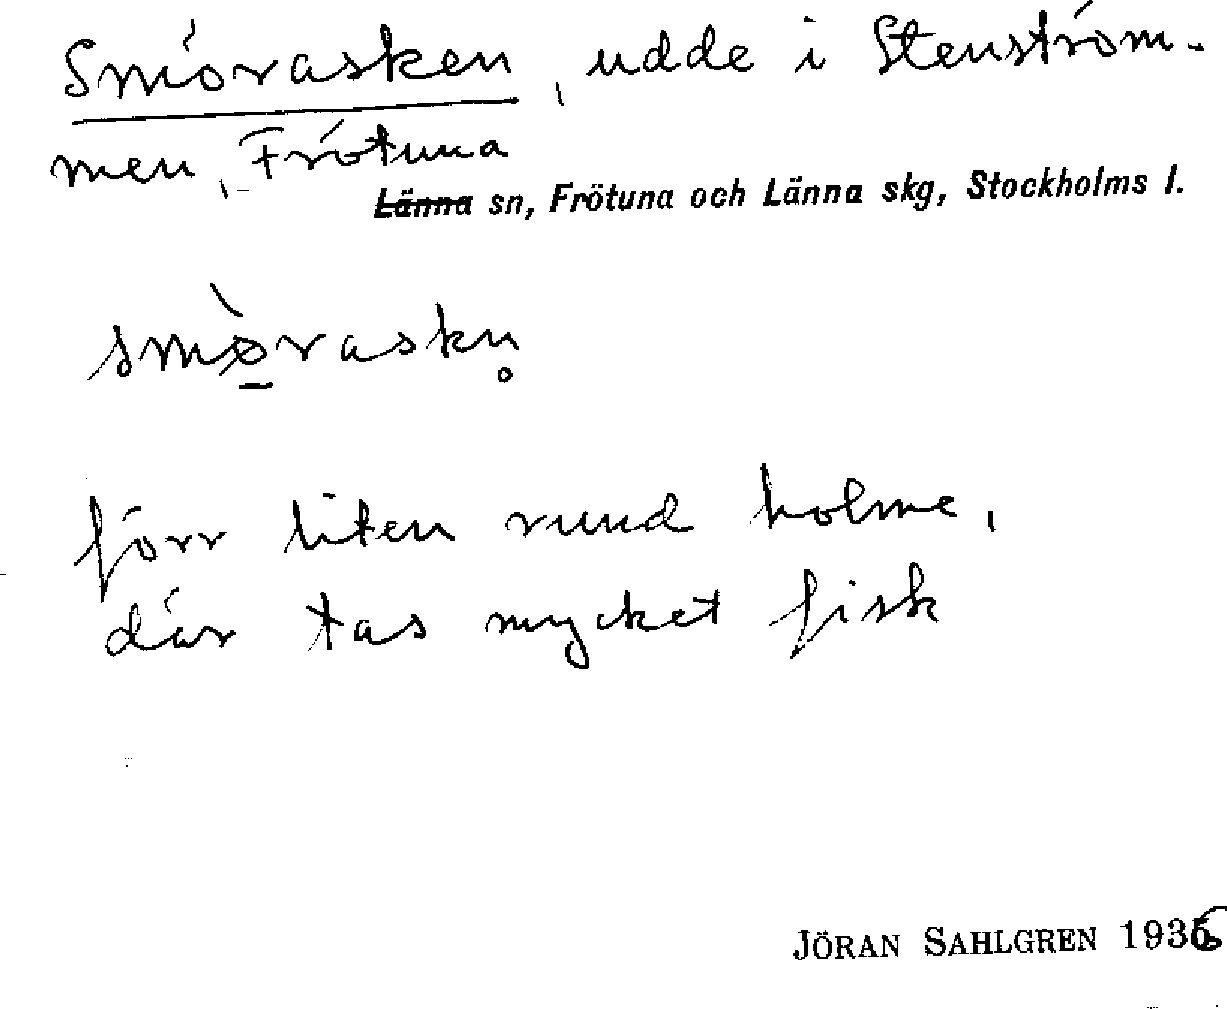 Smörasken, udde i Stenström-
men, Frötuna
Länna sn, Frötuna och Länna skg, Stockholms l.
smø̀raskn̥
förr liten rund holme,
där tas mycket fisk
JÖRAN SAHLGREN 1936